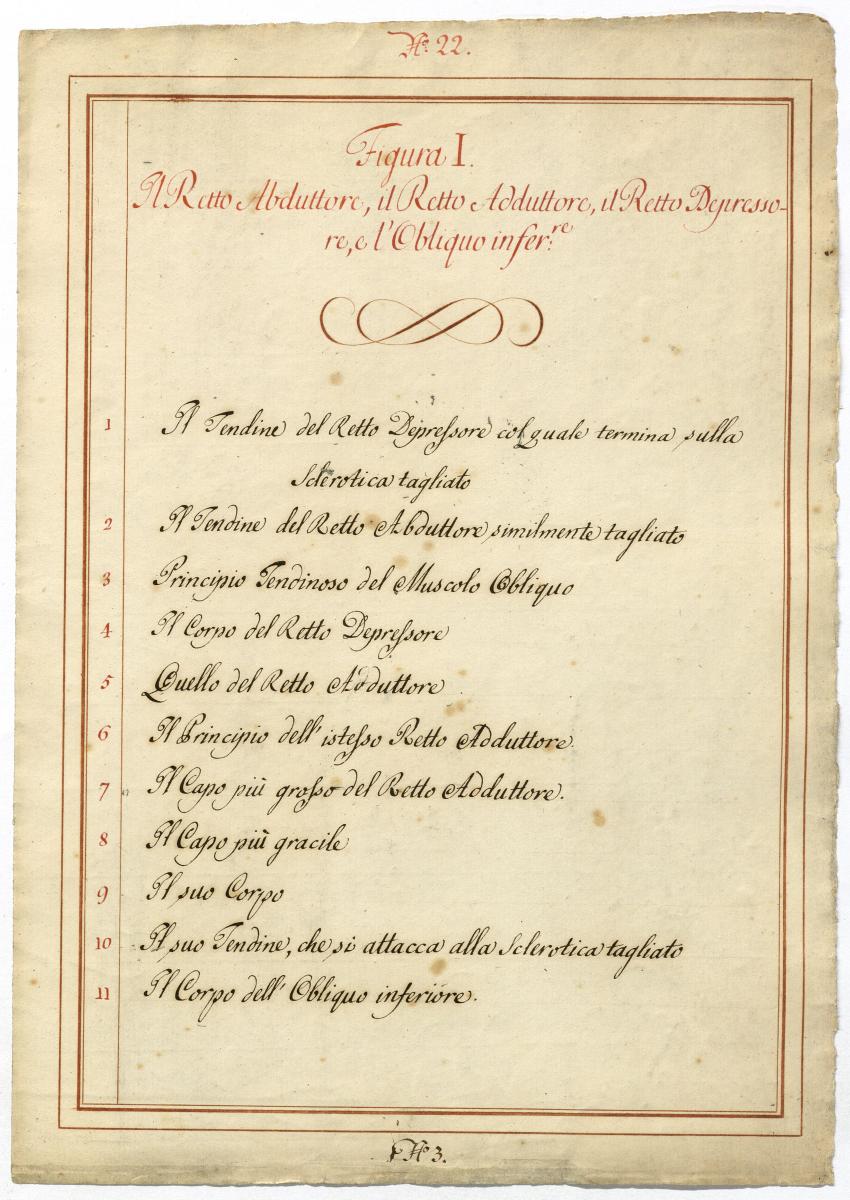 No. 22.
Figura I.
Il Retto Abduttore, il Retto Adduttore, il Retto Depresso-
re, e l'Obliquo infer.re
1 Il Tendine del Retto Depreſsore col quale termina sulla
Sclerotica tagliato
2 Il Tendine del Retto Abduttore similmente tagliato
3 Principio Tendinoso del Muscolo Obliquo
4 Il Corpo del Retto Depreſsore
5 Quello del Retto Adduttore
6 Il Principio dell' isteſso Retto Adduttore.
7 Il Capo più groſso del Retto Adduttore.
8 Il Capo più gracile
9 Il suo Corpo
10 Il suo Tendine, che si attacca alla Sclerotica tagliato
11 Il Corpo dell' Obliquo inferiore.
3.